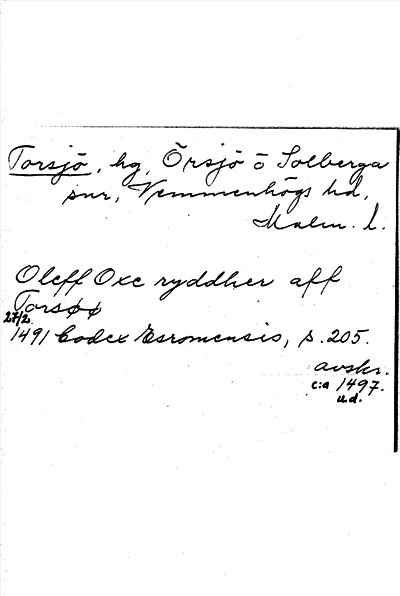 Torsjö, hg, Örsjö o Solberga
snr, Vemmenhögs hd,
Malm. l.
Oleff Oxe ryddher aff
Torsøø
27/2.
1491 Codex Esromensis, s. 205.
avskr.
c:a 1497.
u.d.